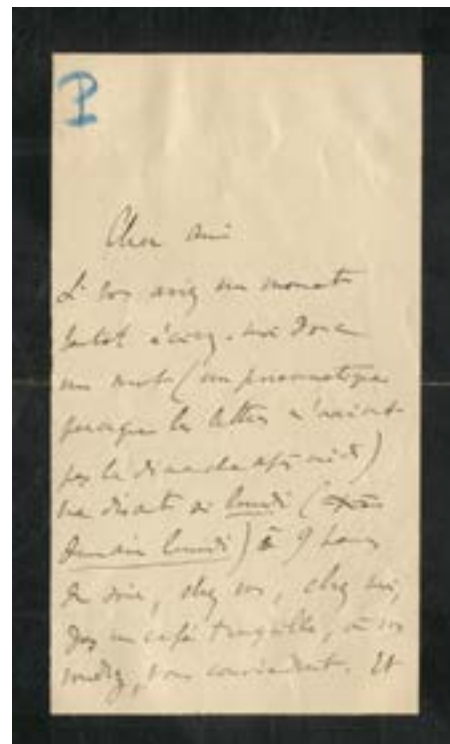 P
Cher ami
Si vous avez un moment
tantôt écrivez-moi donc
un mot (un pneumatique
puisque les lettres n'arrivent
pas le dimanche après midi)
me disant si lundi (
demain lundi) à 9 heures
du soir, chez vous, chez moi,
dans un café tranquille, où vous
voudrez, vous conviendrait. Et